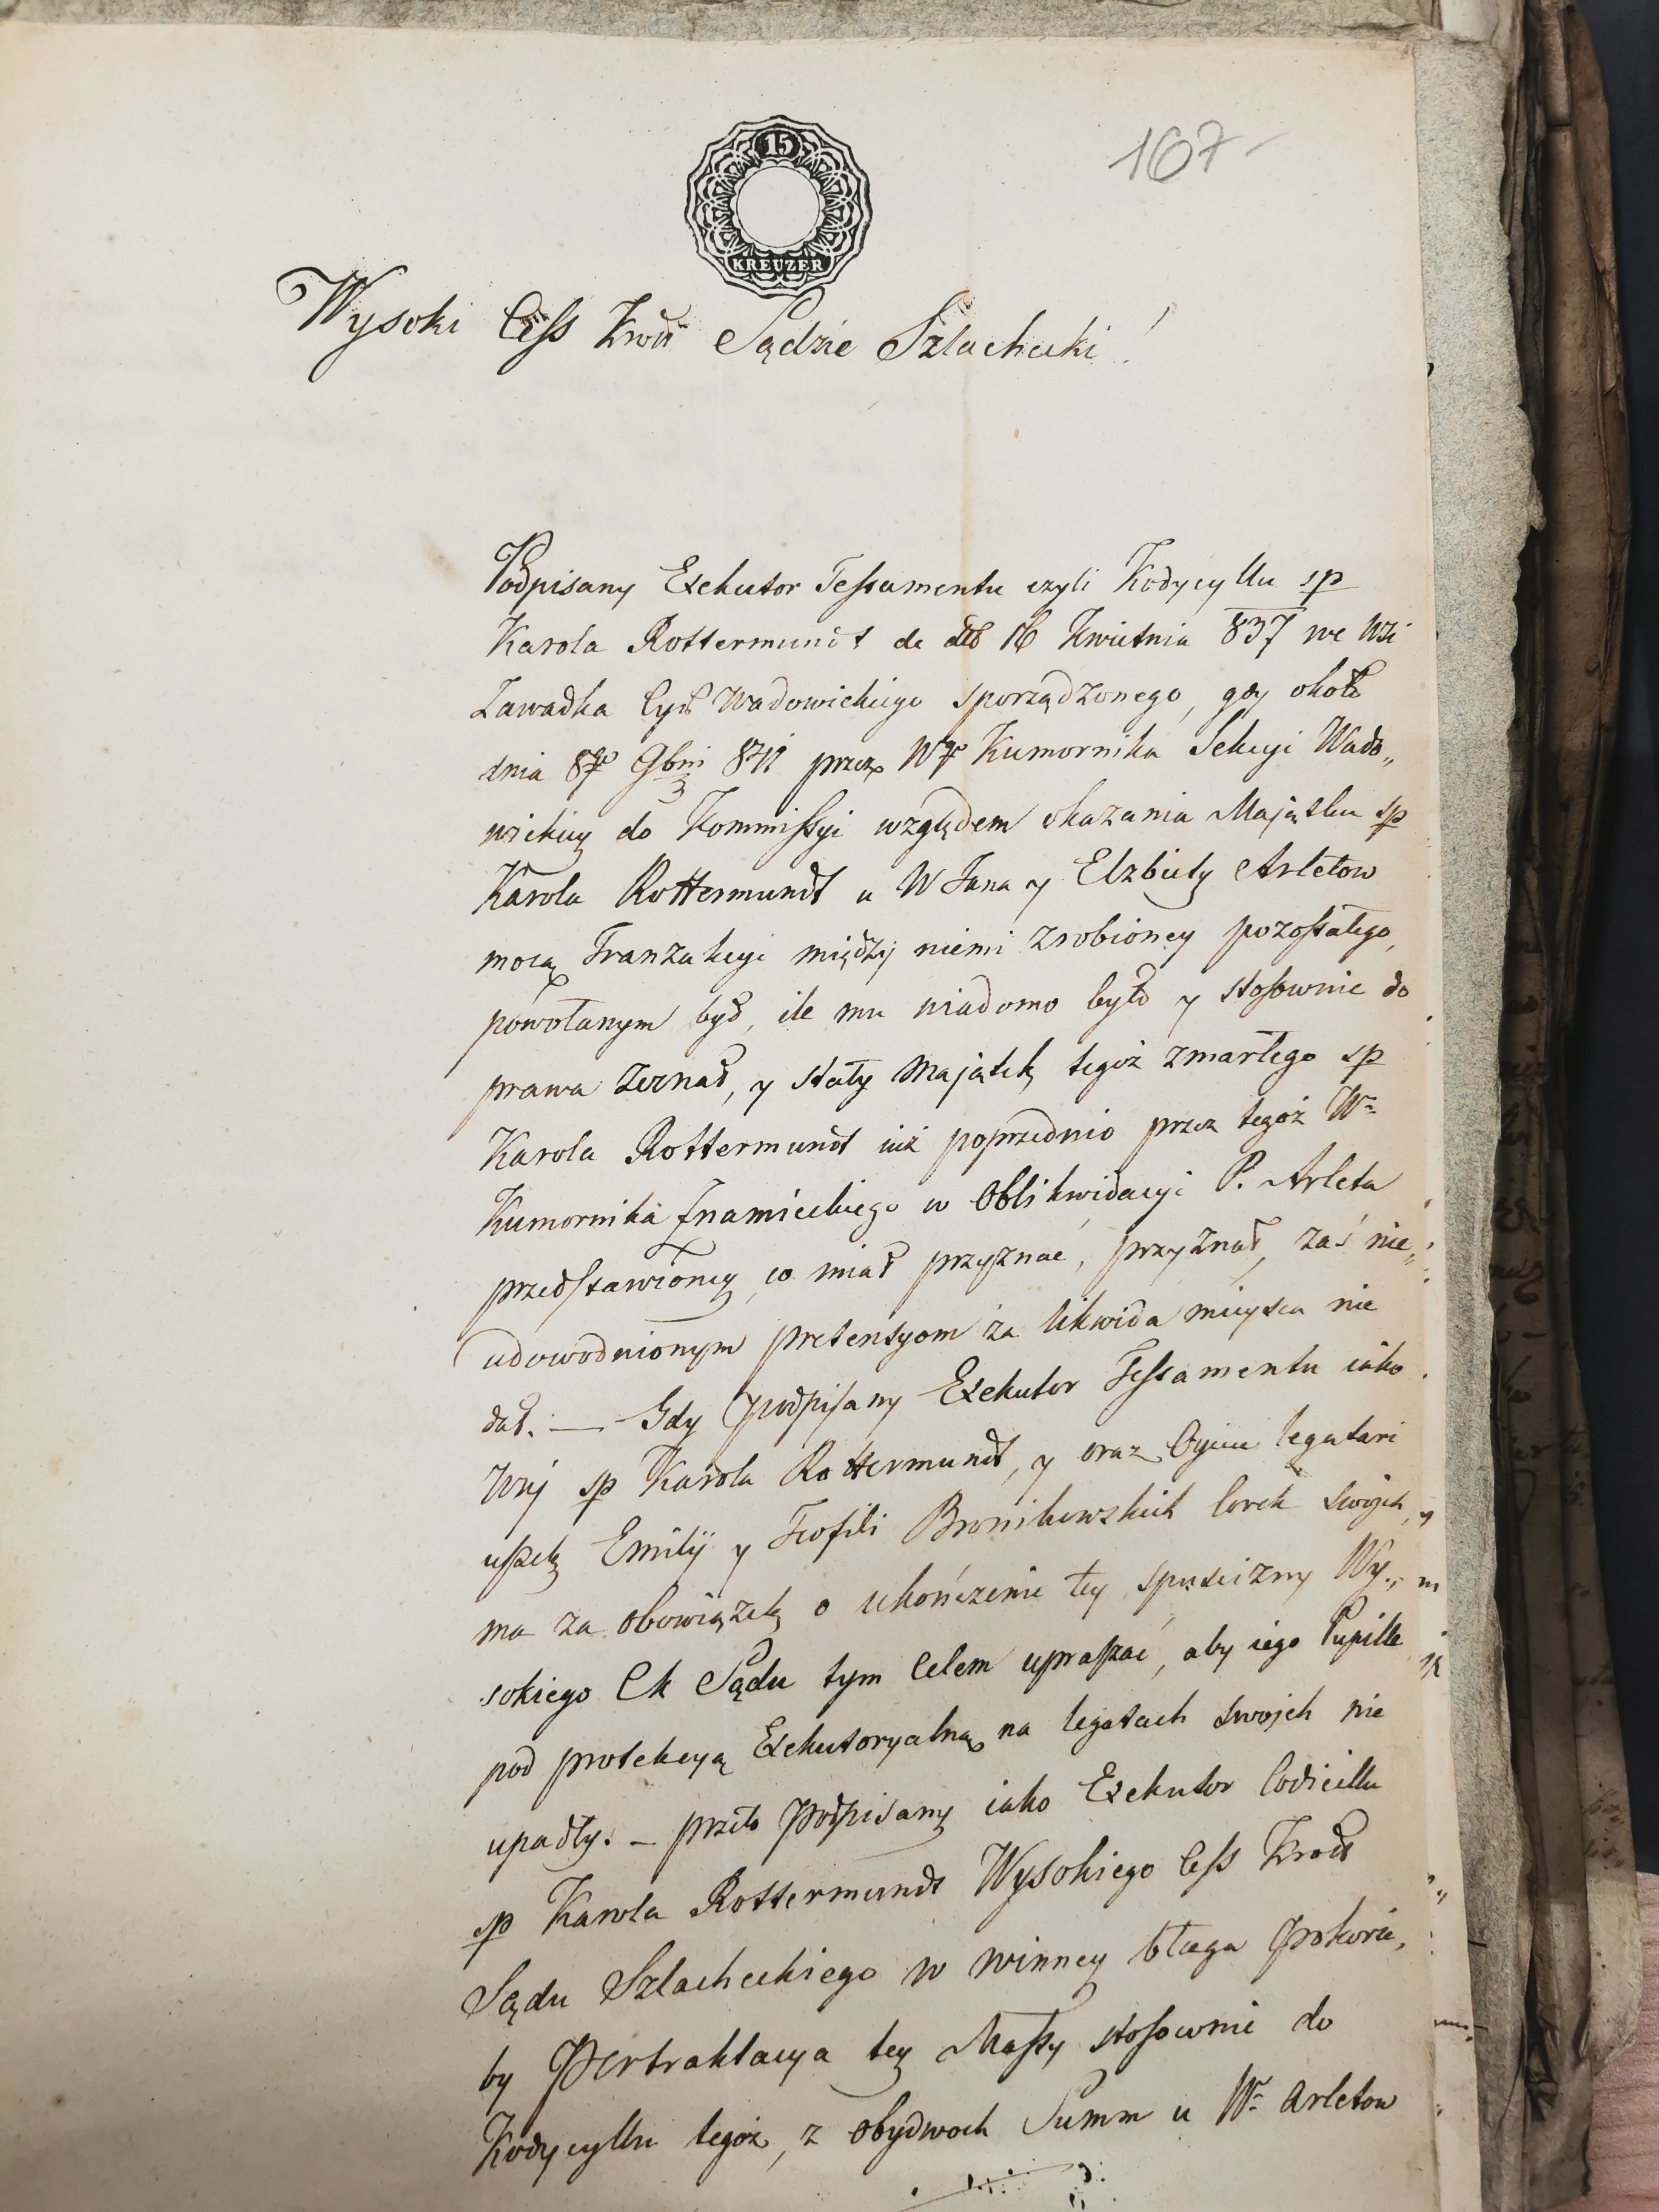 15
KREUZER
167
Wysoki Cess Król Sądzie Szlachecki!
Podpisany Exekutor Testamentu czyli Kodycyllu sp
Karola Rottermundt de dto 16 Kwietnia 837 we Wsi
Zawadka Cyrk Wadowickiego sporządzonego, gdy około
dnia 8go 9bris 841 przez Wgo Kumornika Sekcyi Wado„
wickiey do Kommissyi względem okazania Majątku sp
Karola Rottermundt u W Jana y Elzbiety Arletow
mocą Tranzakcyi między niemi zrobioney pozostałego,
powołanym był, ile mu wiadomo było y stosownie do
prawa zeznał, y stały Majątek tegoż zmarłego sp
Karola Rottermundt iuż poprzednio przez tegoż Wo
Kumornika Znamieckiego w Oblikwidacyi P. Arleta
przedstawioney co miał przyznać, przyznał, zaś nie„
udowodnionym pretensyom za likwida mieysca nie
dał. — Gdy Podpisany Exekutor Testamentu iako
Wuj sp Karola Rottermundt, y oraz Oyciec legatari
uszek Emilij y Teofili Bronikowskich Corek swojch,
ma za obowiązek o ukończenie tey spuścizny Wy„
sokiego CK Sądu tym Celem upraszać, aby iego Pupille
pod protekcyą Exekutoryalną na legatach swojch nie
upadły. — przeto Podpisany iako Exekutor Codicillu
sp Karola Rottermundt Wysokiego Cess Król
Sądu Szlacheckiego w winney błaga Pokorze,
by Pertraktacya tey Massy stosownie do
Kodycyllu tegoż, z obydwoch Summ u Wo Arletow